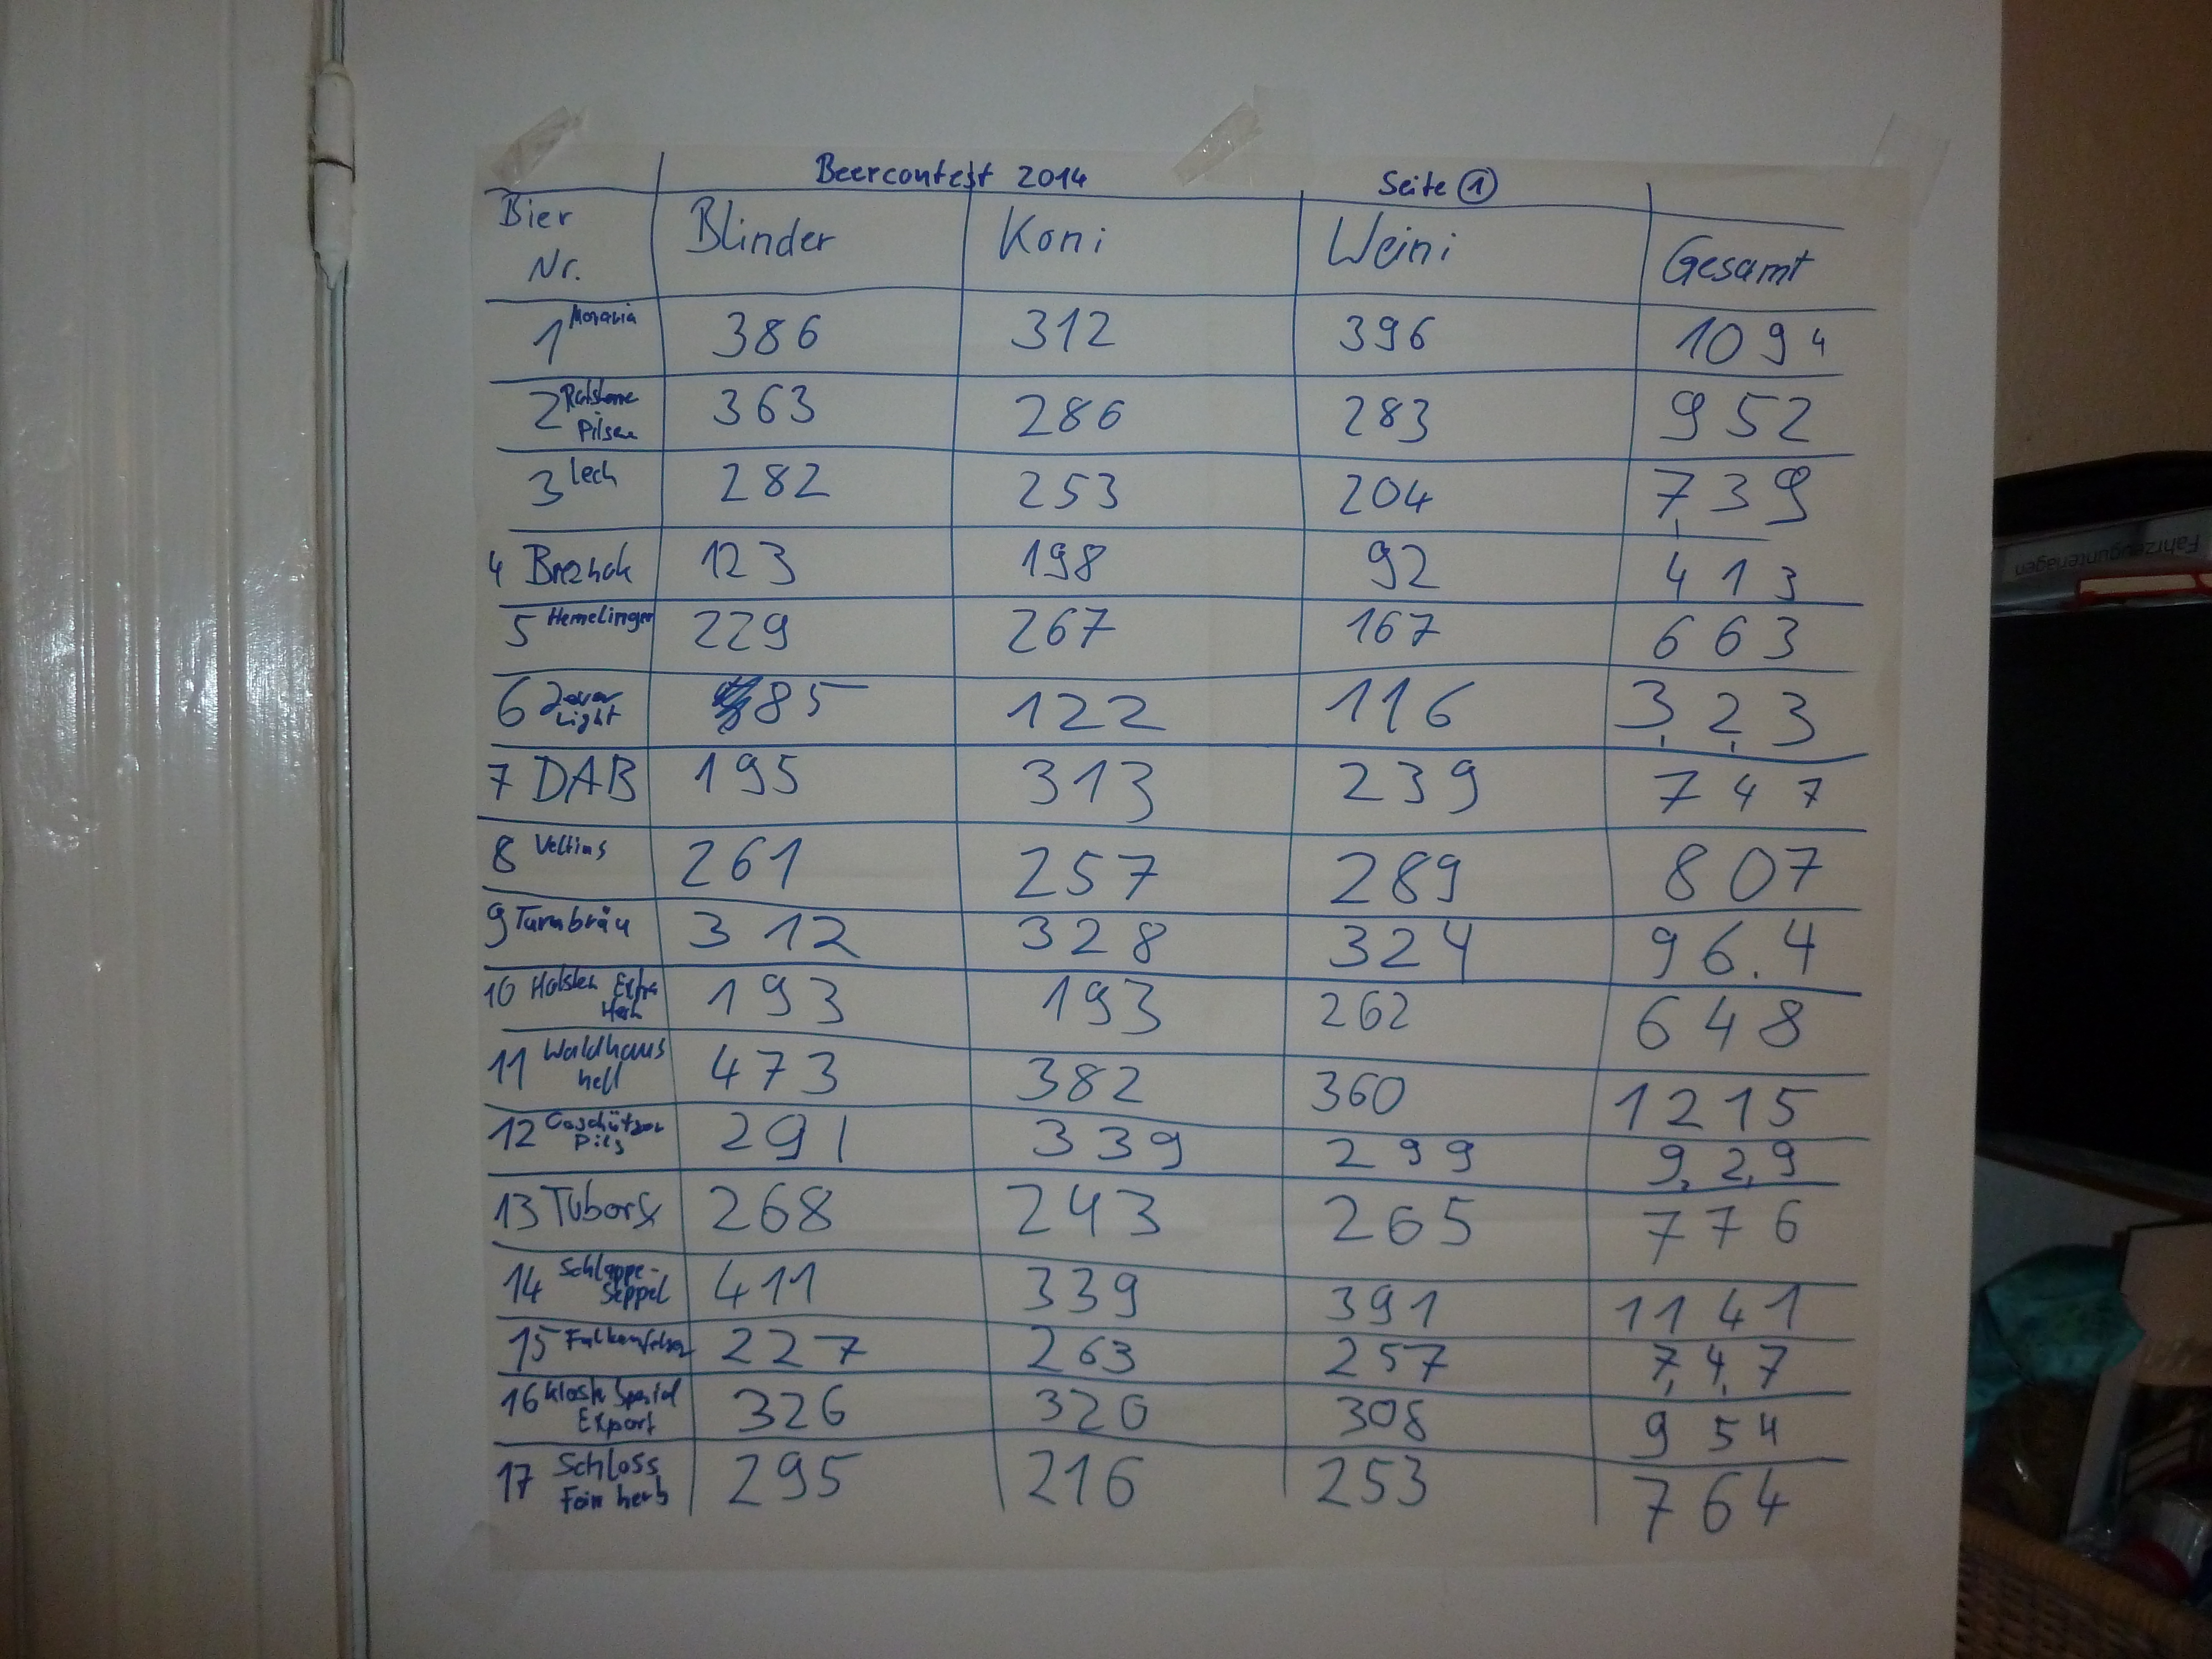 Beercontest 2014 Seite 1
Bier Nr. Blinder Koni Weini Gesamt
1 Moravia 386 312 396 1094
2 Pilsen 363 286 283 952
3 Lech 282 253 204 739
4 Breznak 123 198 92 413
5 Hemelinger 229 267 167 663
6 Light 85 122 116 323
7 DAB 195 313 239 747
8 Veltins 261 257 289 807
9 Turmbräu 312 328 324 96.4
10 Holsten Extra Herb 193 193 262 648
11 Waldhaus hell 473 382 360 1215
12 Coschützer Pils 291 339 299 929
13 Tuborg 268 243 265 776
14 Schlappe-Seppel 411 339 391 1141
15 Falkenfelser 227 263 257 747
16 Kloster Spezial Export 326 320 308 954
17 Schloss Fein herb 295 216 253 764
Fahrzeugunterlagen